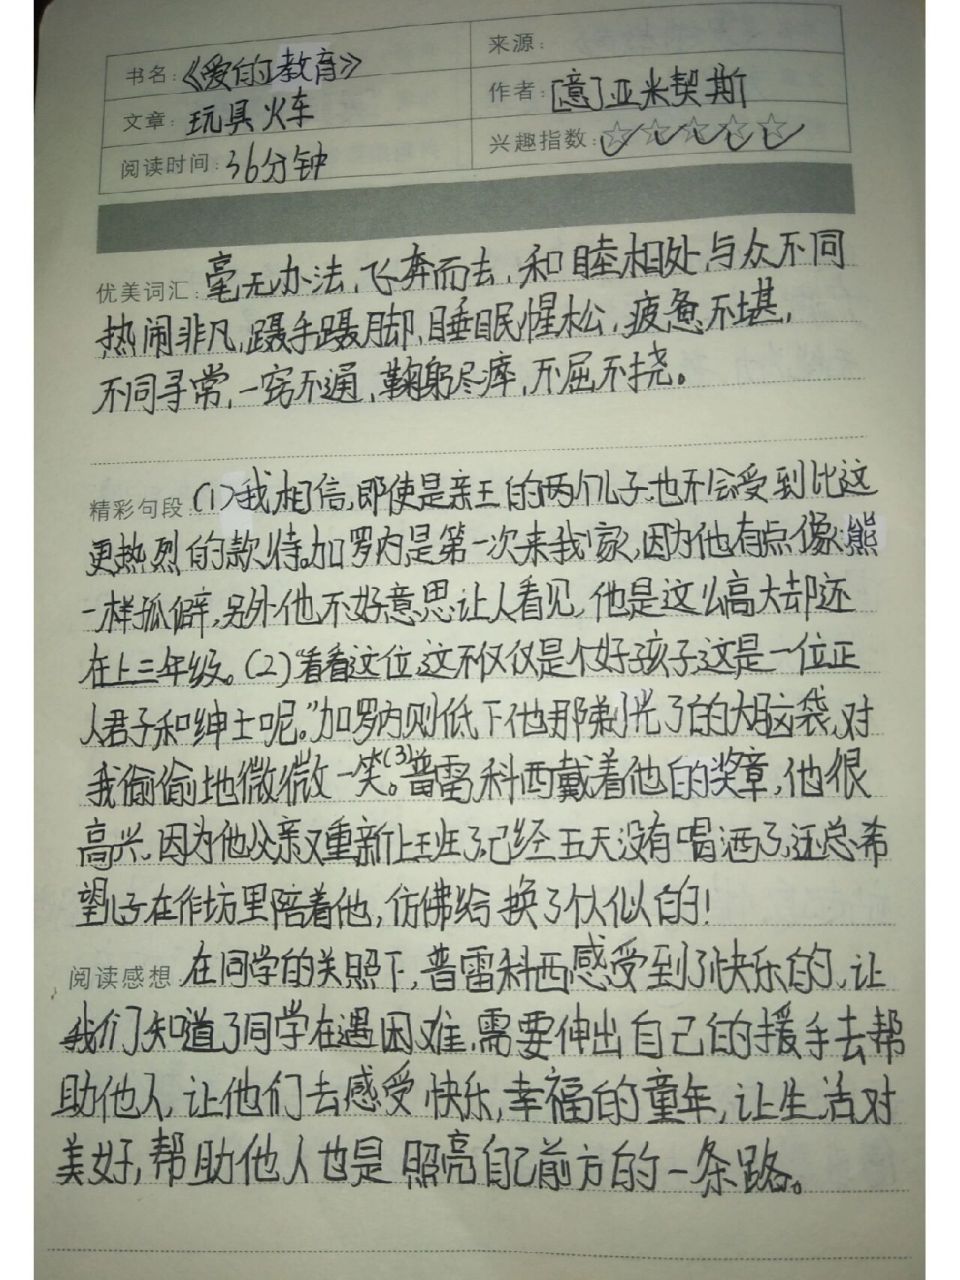 书名:《爱的教育》 来源:
文章: 玩具火车 作者:[意]亚米契斯
阅读时间: 36分钟 兴趣指数:
优美词汇: 毫无办法,飞奔而去,和睦相处,与众不同
热闹非凡,蹑手蹑脚,睡眠惺松,疲惫不堪,
不同寻常,一窍不通,鞠躬尽瘁,不屈不挠。
精彩句段 (1)我相信,即使是亲王的两个儿子.也不会受到比这
更热烈的款待.加罗内是第一次来我家,因为他有点像熊
一样孤僻,另外他不好意思让人看见,他是这么高大却还
在上三年级。(2)“看看这位,这不仅仅是个好孩子这是一位正
人君子和绅士呢。”加罗内则低下他那剃光了的大脑袋,对
我偷偷地微微一笑。(3)普雷科西戴着他的奖章,他很
高兴.因为他父亲又重新上班了.已经五天没有喝酒了.还总希
望儿子在作坊里陪着他,仿佛给换了个人似的!
阅读感想 在同学的关照下,普雷科西感受到了快乐的.让
我们知道了同学在遇困难.需要伸出自己的援手去帮
助他人,让他们去感受快乐,幸福的童年,让生活对
美好,帮助他人也是照亮自己前方的一条路。